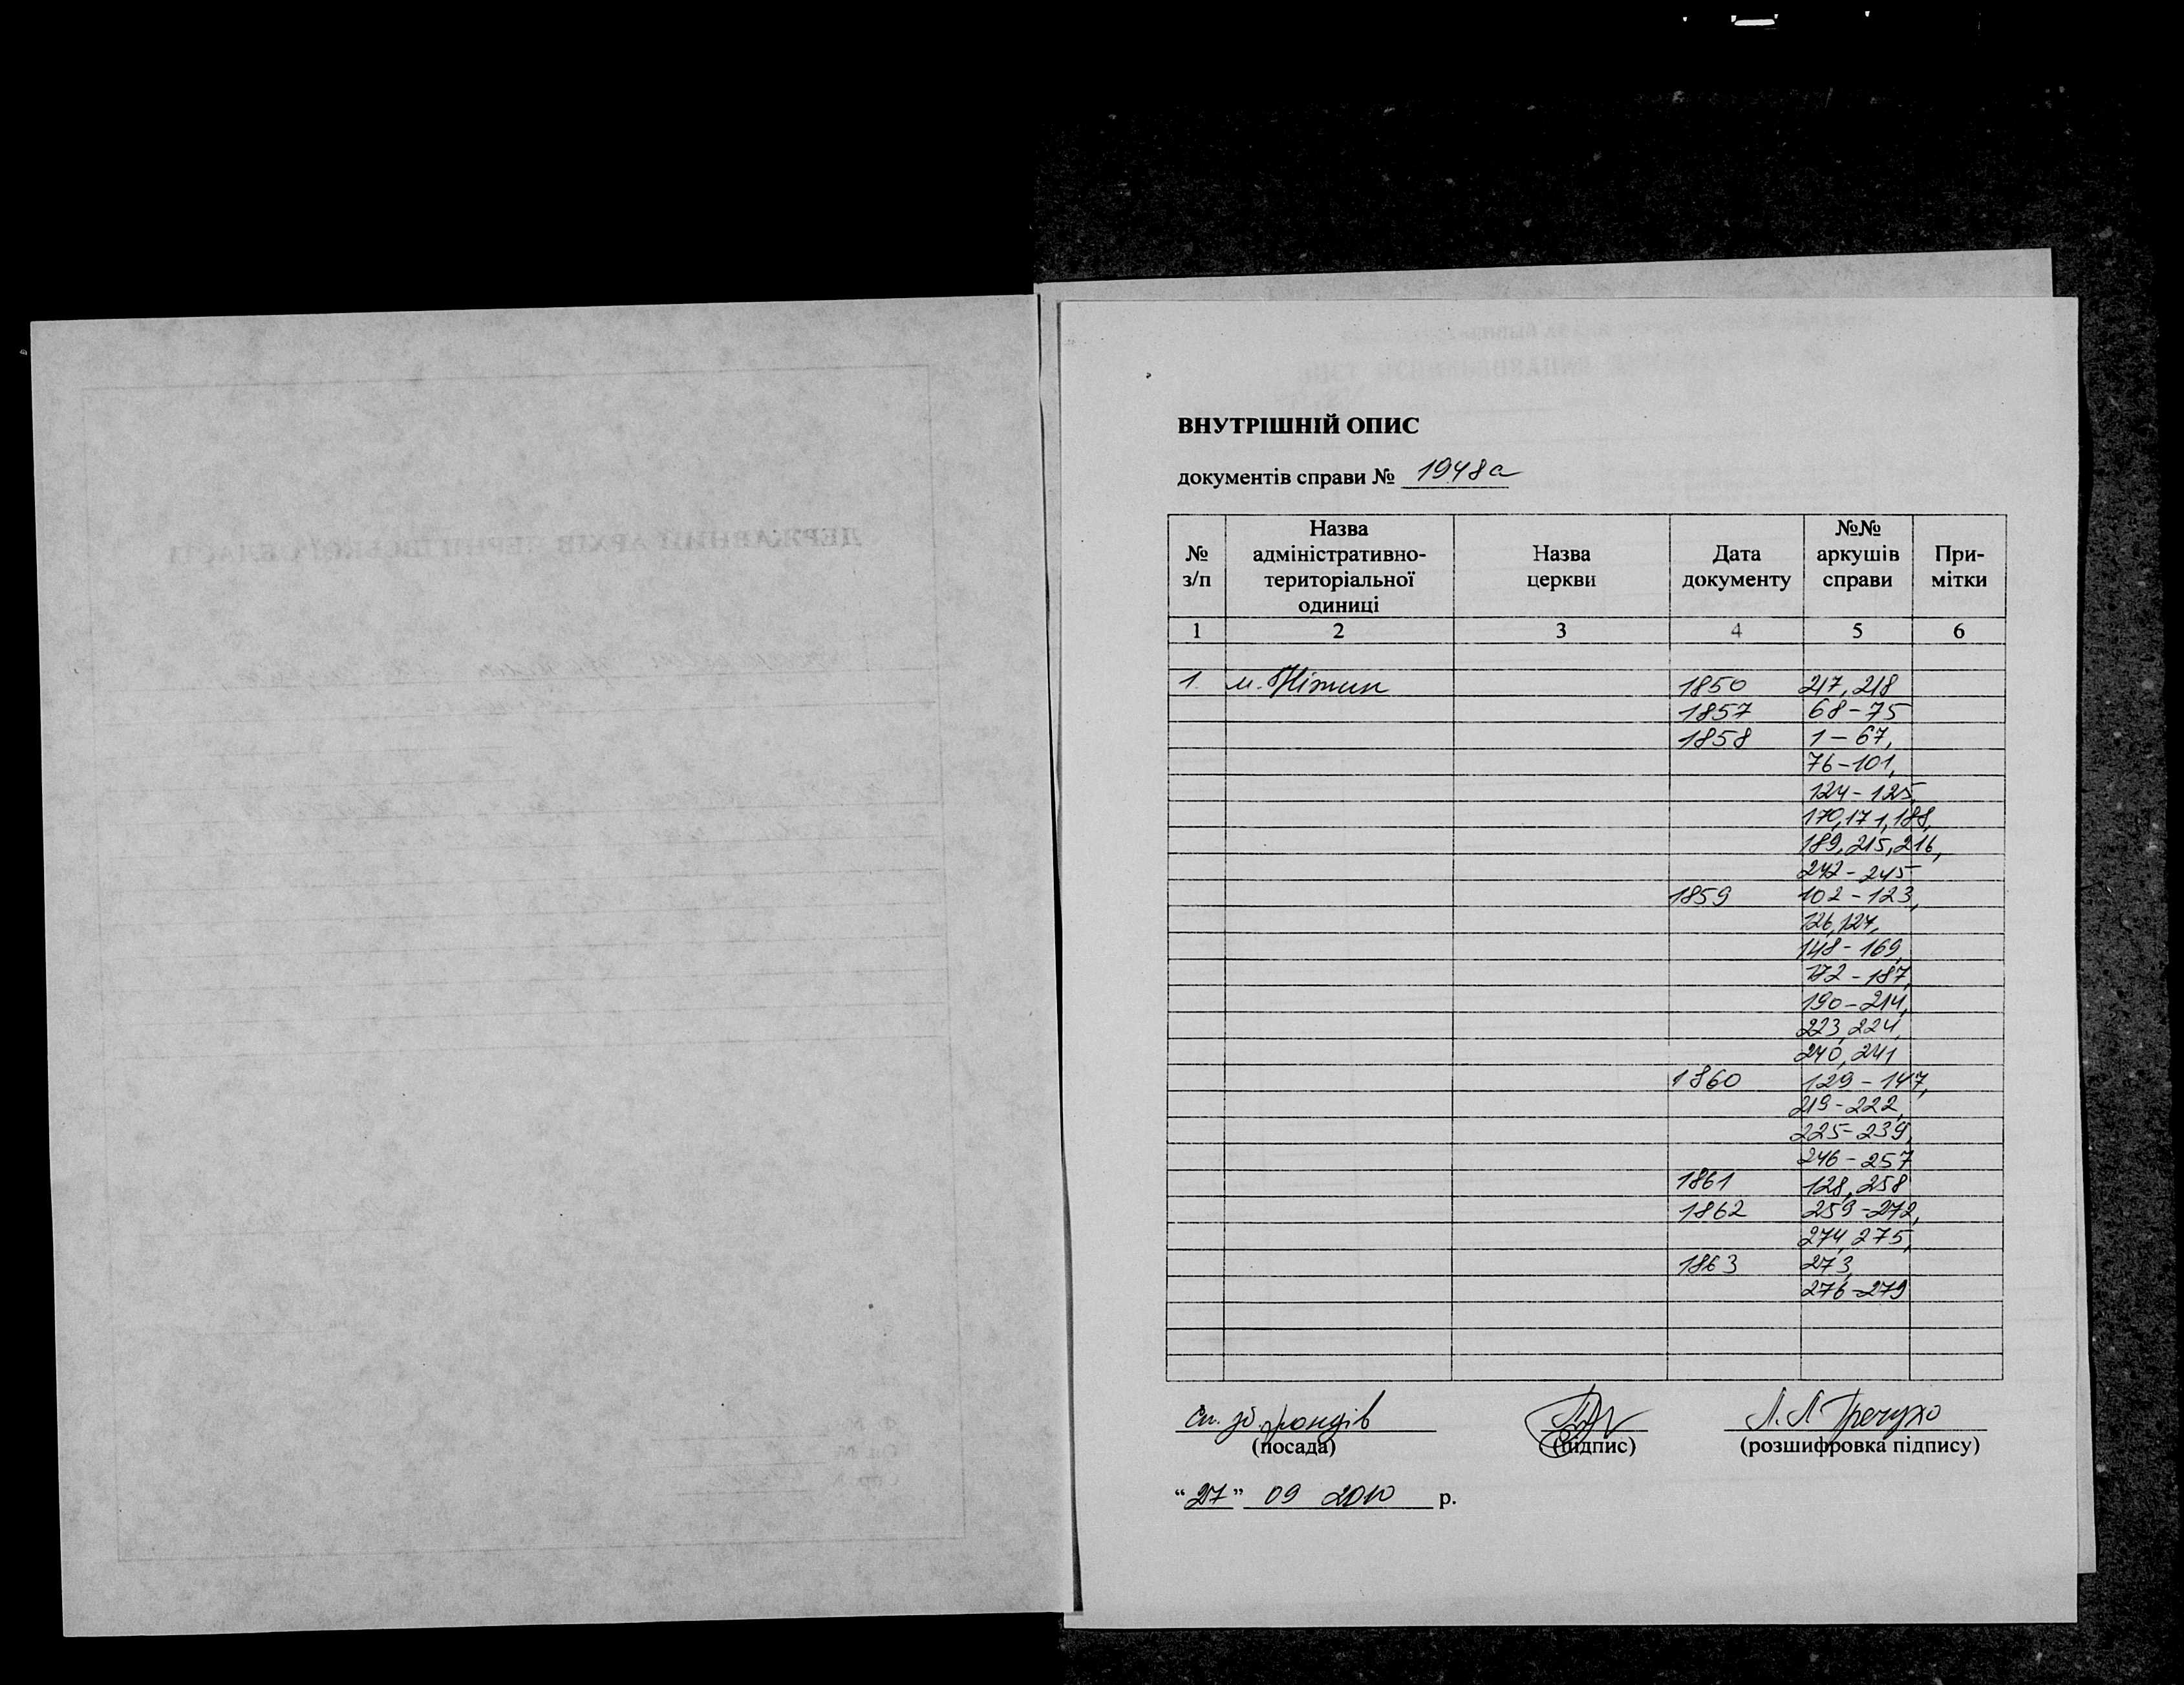 ВНУТРІШНІЙ ОПИС
документів справи № 1948а
№ з/п
Назва адміністративно-територіальної одиниці
Назва церкви
Дата документу
№№ аркушів справи
При-мітки
1 2 3 4 5 6
1. м. Ніжин 1850 217, 218
1857 68-75
1858 1-67,
76-101,
124-125,
170, 171, 188,
189, 215, 216,
242-245
1859 102-123,
126, 127,
148-169,
172-187,
190-214,
223, 224,
240, 241
1860 129-147,
219-222,
225-239,
246-257
1861 128, 258
1862 259-272,
274, 275,
1863 273,
276-279
фондів
(посада) (підпис) (розшифровка підпису)
“27” 09 2010 р.